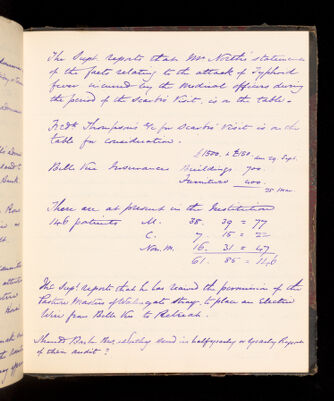 The Supt. reports that Mr North's statement
of the facts relating to the attack of Typhoid
fever incurred by the medical officers during
the period of the Scarbro' Visit, is on the table.
Fredk Thompson's a/c for Scarbro' Visit is on the
table for consideration.
£1500. & £150. due 29. Sept.
Belle Vue Insurances Buildings 700.
Furniture 400.
25 Mar.
There are at present in the Institution
146 patients M. 38. 39 = 77
C. 7. 15 = 22
Non. M. 16. 31 = 47
61. 85 = 146
The Supt reports that he has received the permission of the
Pasture Masters of Walmgate Stray, to place an Electric
Wire from Belle Vue to Retreat.
Should Bark Bros. send in half yearly or Yearly Reports
of their audit?